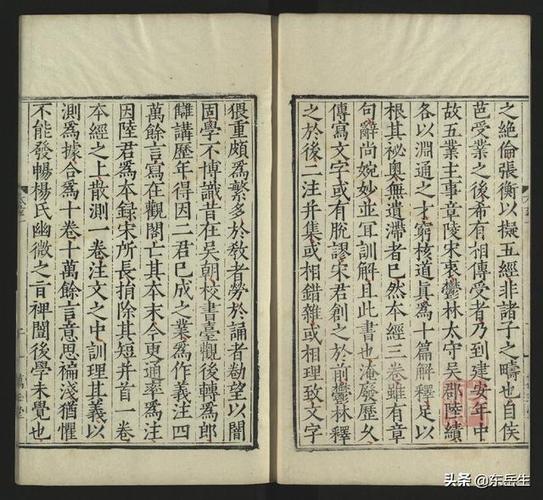 之絶倫張衡以擬五經非諸子之疇也自侯
芭受業之後希有相傳受者乃到建安年中
故五業主事章陵宋衷鬱林太守吳郡陸績
各以淵通之才窮核道真爲十篇解釋足以
根其祕奥無遺滯者已然本經三卷雖有章
句辭尚婉妙並宜訓解且此書也淹廢歷久
傳寫文字或有脫謬宋君創之於前鬱林釋
之於後二注并集或相錯雜或相理致文字
猥重頗爲繁多於敎者勞於誦者勌望以闇
固學不博識昔在吳朝校書臺觀後轉爲郎
讎講歷年得因二君已成之業爲作義注四
萬餘言寫在觀閣亡其本末今更通率爲注
因陸君爲本録宋所長捐除其短并首一卷
本經之上散測一卷注文之中訓理其義以
測爲據合爲十卷十萬餘言意思褊淺猶懼
不能發暢楊氏幽微之旨裨闓後學未覺也
头条 @东岳生